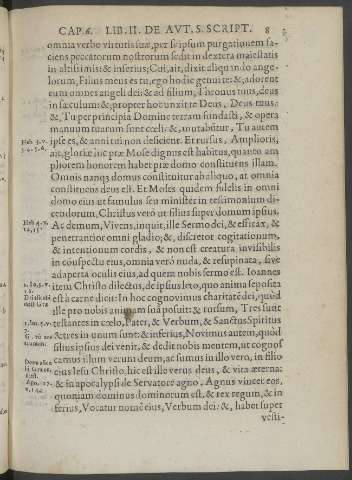 CAP. 6. LIB. II. DE AVT. S. SCRIPT. 8
omnia verbo virtutis suæ, per seipsum purgationem fa-
ciens peccatorum nostrorum sedit in dextera maiestatis
in altissimis: & inferius; Cui, ait, dixit aliquando ange-
lorum, Filius meus es tu, ego hodie genui te: & adorent
eum omnes angeli dei: & ad filium, Thronus tuus, deus
in sæculum: & propter hoc unxit te Deus, Deus tuus:
&, Tu per principia Domine terram fundasti, & opera
manuum tuarum sunt cœli: &, mutabitur, Tu autem
Heb. 3. v.
ipse es, & anni tui non deficient. Et rursus, Amplioris,
3. 4. 5. 6.
ait, gloriæ iuc præ Mose dignus est habitus, quanto am
pliorem honorem habet præ domo constituens illam.
Omnis nanq; domus constituitur ab aliquo, at omnia
constituens deus est. Et Moses quidem fidelis in omni
domo eius ut famulus seu minister in testimonium di-
cendorum, Christus verò ut filius super domum ipsius.
Heb. 4. v.
Ac demum, Vivens, inquit, ille Sermo dei, & efficax, &
12, 13.
penetrantior omni gladio; &, discretor cogitationum,
& intentionum cordis, & non est creatura invisibilis
in conspectu eius, omnia verò nuda, & resupinata, sive
adaperta oculis eius, ad quem nobis sermo est. Ioannes
item Christo dilectus, de ipsius leto, quo anima seposita
est à carne dicit: In hoc cognovimus charitatẽ dei, quòd
ille pro nobis animam suã posuit: & rursum, Tres sunt
testantes in cœlo, Pater, & Verbum, & Sanctus Spiritus
& tres in unum sunt: & inferius, Novimus autem, quòd
filius ipsius dei venit, & dedit nobis mentem, ut cognos
camus illum verum deum, ac sumus in illo vero, in filio
eius Iesu Christo. hic est ille verus deus, & vita æterna:
& in apocalypsi de Servatore agno, Agnus vincet eos,
quoniam dominus dominorum est, & rex regum, & in
ferius, Vocatur nomẽ eius, Verbum dei: &, habet super
vesti-